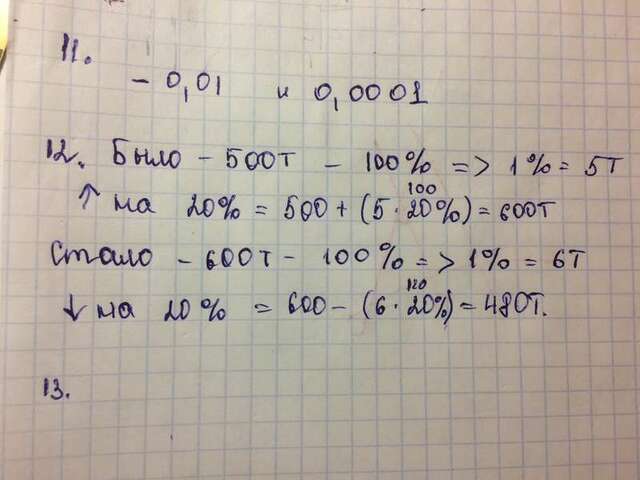 11.
- 0,01 и 0,0001
12. Было - 500т - 100% => 1% = 5т
↑ на 20% = 500 + (5 · 20%) = 600т
100
Стало - 600т - 100% => 1% = 6т
↓ на 20% = 600 - (6 · 20%) = 480т.
120
13.